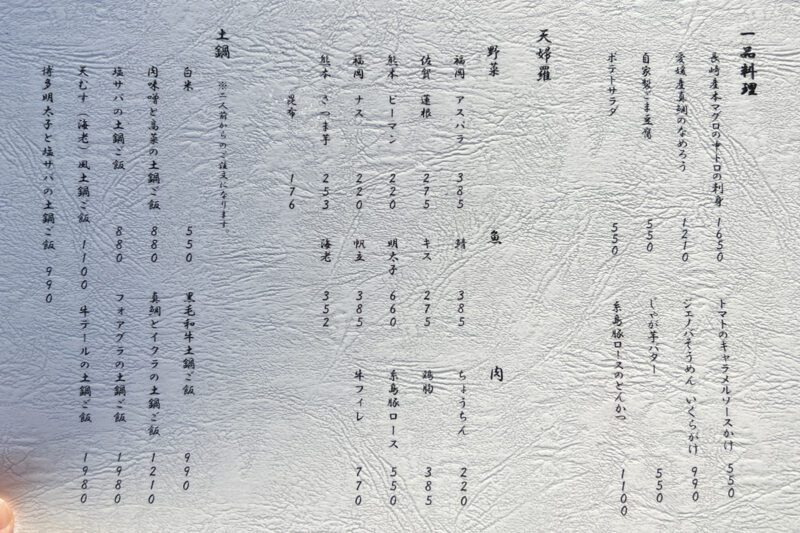 一品料理
長崎産本マグロの中トロの刺身 1650
愛媛産真鯛のなめろう 1210
自家製ごま豆腐 550
ポテトサラダ 550
トマトのキャラメルソースかけ 550
ジェノバそうめん いくらがけ 990
じゃが芋バター 550
糸島豚ロースのとんかつ 1100
天婦羅
野菜
福岡 アスパラ 385
佐賀 蓮根 275
熊本 ピーマン 220
福岡 ナス 220
熊本 さつま芋 253
昆布 176
魚
鯖 385
キス 275
明太子 660
帆立 385
海老 352
肉
ちょうちん 220
鶏胸 385
糸島豚ロース 550
牛フィレ 770
土鍋
※二人前からのご注文になります。
白米 550
肉味噌と高菜の土鍋ご飯 880
塩サバの土鍋ご飯 880
天むす(海老)風土鍋ご飯 1100
博多明太子と塩サバの土鍋ご飯 990
黒毛和牛土鍋ご飯 990
真鯛とイクラの土鍋ご飯 1210
フォアグラの土鍋ご飯 1980
牛テールの土鍋ご飯 1980